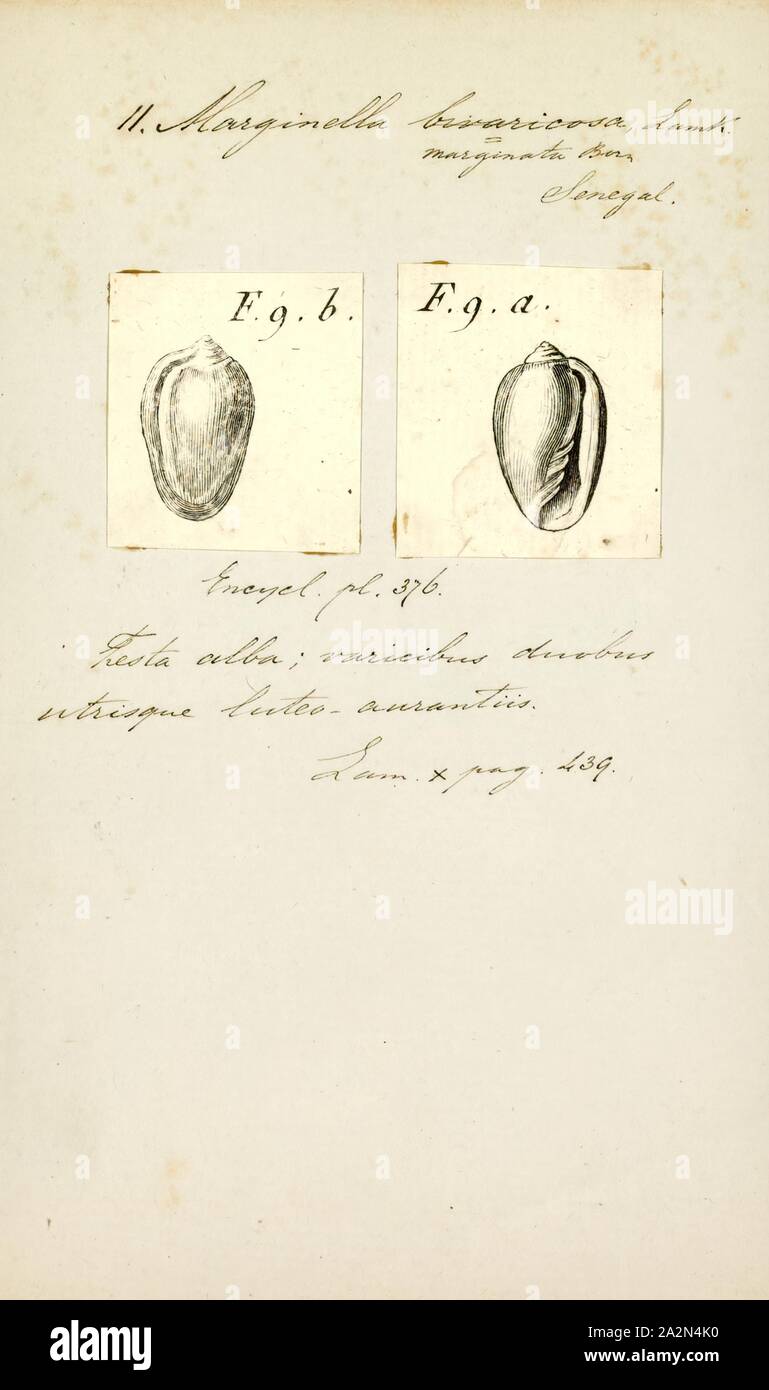 11. Marginella bivaricosa, Lamk.
=
marginata Born
Senegal.
F. 9. b.
F. 9. a.
Encycl. pl. 376.
Testa alba; varicibus duobus
utrisque luteo-aurantiis.
Lam. x pag. 439.
alamy
alamy
Image ID: 2A2N4K0
www.alamy.com